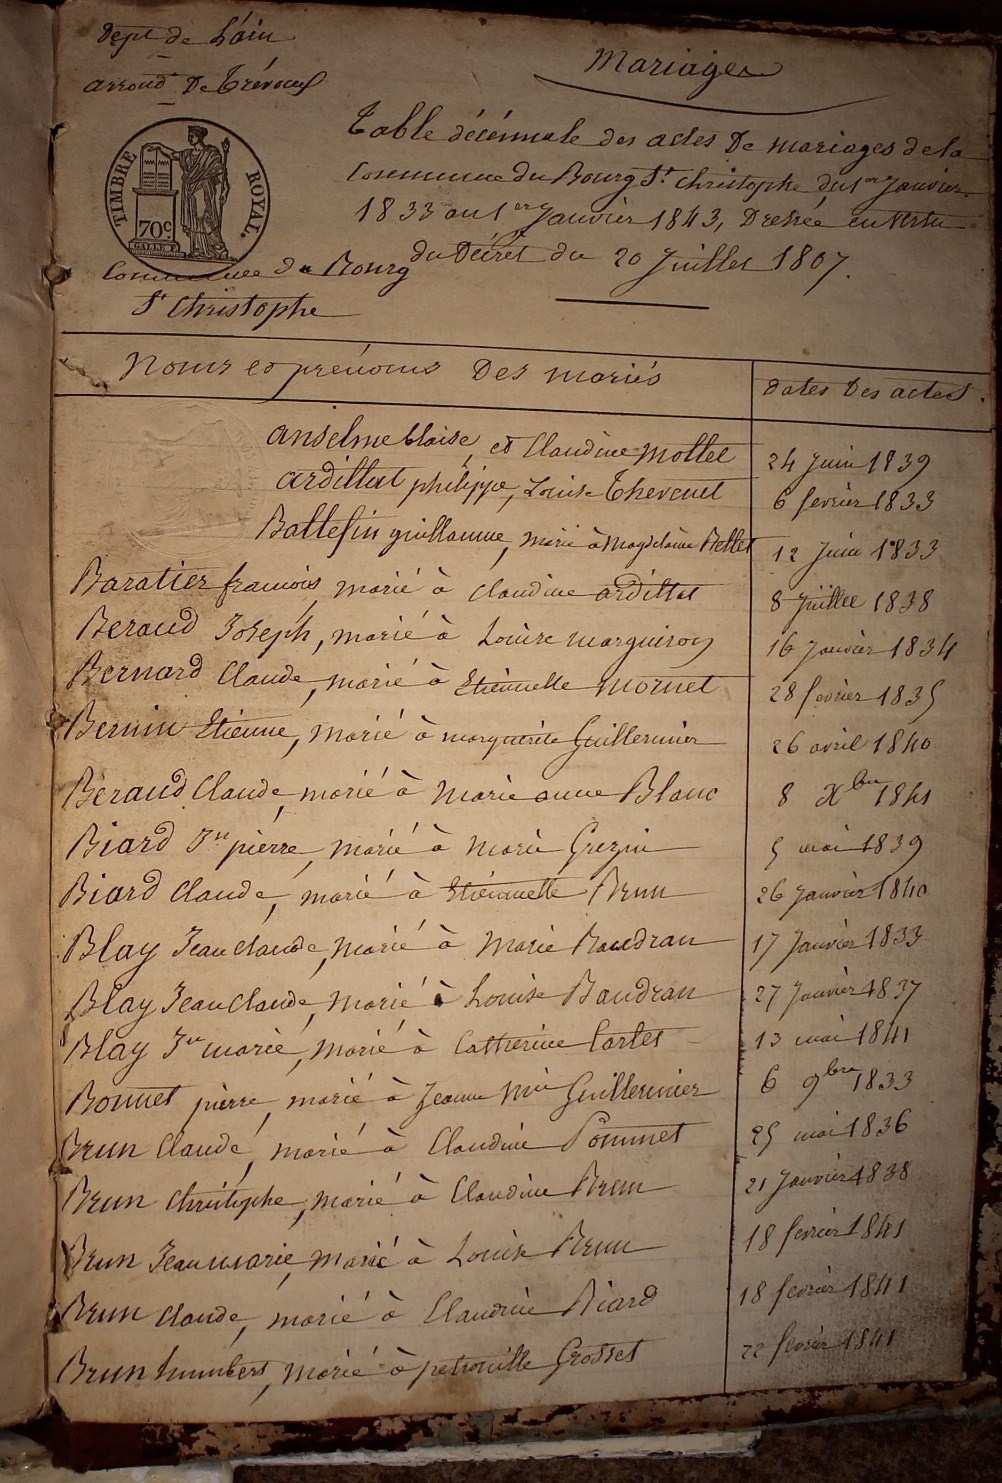 Dept de L'ain
arrond.t De Trévoux
Mariages
TIMBRE ROYAL.
70c
Table décennale des actes De mariages de la
Commune du Bourg St christophe du 1er Janvier
1833 au 1er Janvier 1843, Dressée en vertu
du Décret du 20 Juillet 1807.
Commune du Bourg
St Christophe
Noms et prénoms Des mariés dates Des actes.
anselme blaise, et Claudine Mollet 24 Juin 1839
ardillat philippe, Louise Thevenet 6 fevrier 1833
Battesin guillaume, marié à Magdelaine Bellet 12 Juin 1833
Baratier francois marié à claudine ardillat 8 Juillet 1838
Beraud Joseph, marié à Louise marguiron 16 Janvier 1834
Bernard Claude, marié à Etiennette Mornet 28 fevrier 1835
Bernin Etienne, marié à marguerite Guillerminier 26 avril 1840
Béraud Claude, marié à Marie anne Blanc 8 Xbre 1841
Biard Jn pierre, marié à Marie Grezin 5 mai 1839
Biard Claude, marié à Etiennette Brun 26 Janvier 1840
Blay Jean claude, marié à Marie Baudran 17 Janvier 1833
Blay Jean Claude, marié à Louise Baudran 27 Janvier 1837
Blay Jn marie, marié à Catherine Carlet 13 mai 1841
Bonnet pierre, marié à Jeanne Mie Guillerminier 6 9bre 1833
Brun Claude, marié à Claudine Pommet 25 mai 1836
Brun Christophe, marié à Claudine Brun 21 Janvier 1838
Brun Jean marie, marié à Louise Brun 18 fevrier 1841
Brun Claude, marié à Claudine Biard 18 fevrier 1841
Brun humbert, marié à petronille Grosset 22 fevrier 1841